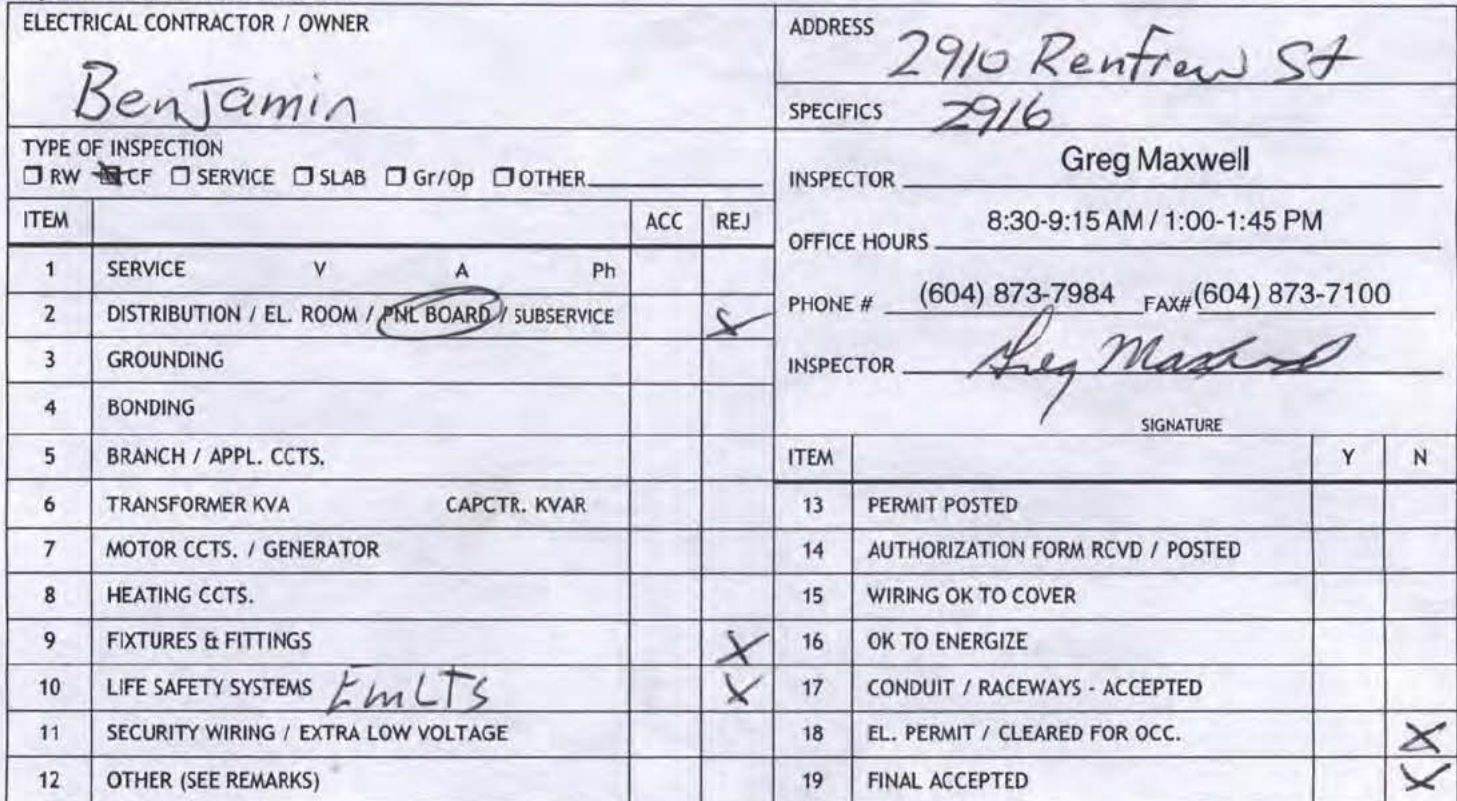 ELECTRICAL CONTRACTOR / OWNER
Benjamin
TYPE OF INSPECTION
RW CF SERVICE SLAB Gr/Op OTHER
ITEM ACC REJ
1 SERVICE V A Ph
2 DISTRIBUTION / EL. ROOM / PNL BOARD / SUBSERVICE X
3 GROUNDING
4 BONDING
5 BRANCH / APPL. CCTS.
6 TRANSFORMER KVA CAPCTR. KVAR
7 MOTOR CCTS. / GENERATOR
8 HEATING CCTS.
9 FIXTURES & FITTINGS X
10 LIFE SAFETY SYSTEMS EmLTS X
11 SECURITY WIRING / EXTRA LOW VOLTAGE
12 OTHER (SEE REMARKS)
ADDRESS 2910 Renfrew St
SPECIFICS 2916
INSPECTOR Greg Maxwell
OFFICE HOURS 8:30-9:15 AM / 1:00-1:45 PM
PHONE # (604) 873-7984 FAX# (604) 873-7100
INSPECTOR Greg Maxwell
SIGNATURE
ITEM Y N
13 PERMIT POSTED
14 AUTHORIZATION FORM RCVD / POSTED
15 WIRING OK TO COVER
16 OK TO ENERGIZE
17 CONDUIT / RACEWAYS - ACCEPTED
18 EL. PERMIT / CLEARED FOR OCC. X
19 FINAL ACCEPTED X